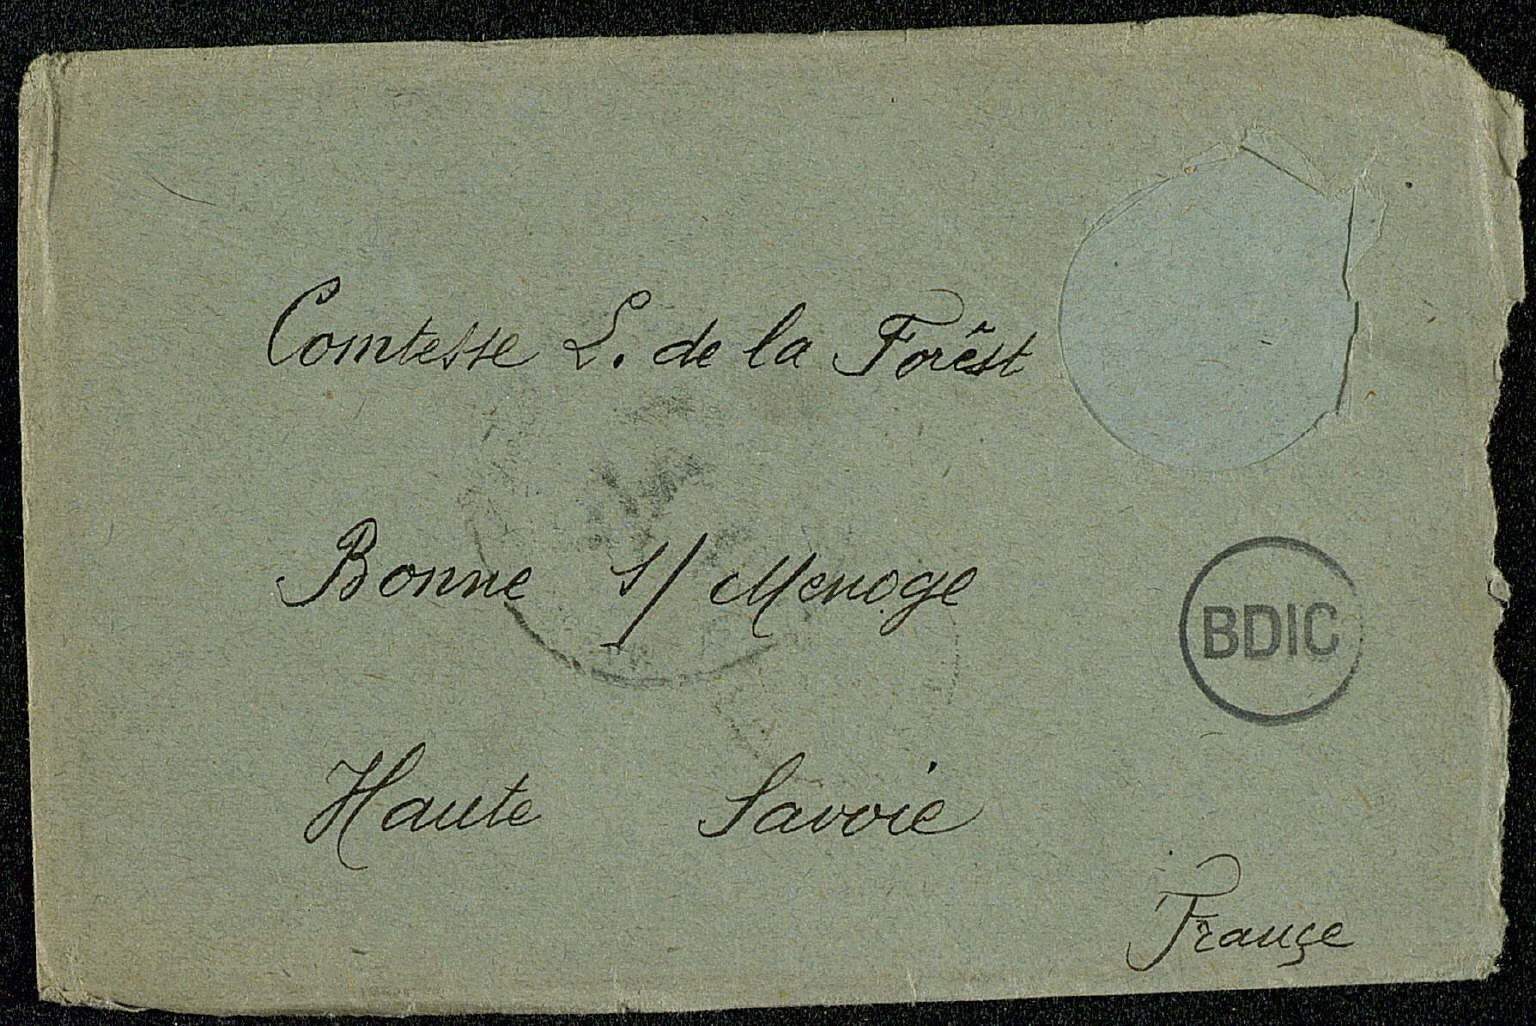 Comtesse L. de la Forêst
Bonne s/ Menoge
BDIC
Haute Savoie
Françe